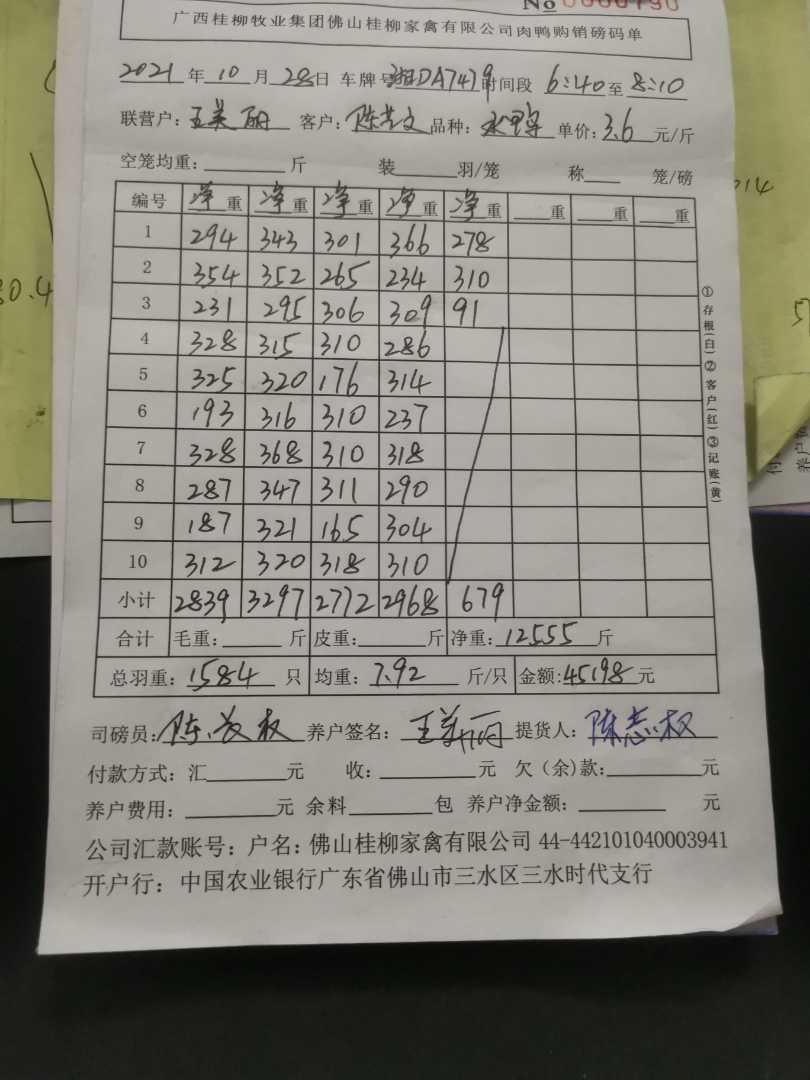 No 0000790
广西桂柳牧业集团佛山桂柳家禽有限公司肉鸭购销磅码单
2021 年 10 月 28 日 车牌号 DA7479 时间段 6:40 至 8:10
联营户: 王美丽 客户: 陈志文 品种: 单价: 3.6 元/斤
空笼均重: 斤 装 羽/笼 称 笼/磅
编号 净重 净重 净重 净重 净重 重 重 重
1 294 343 301 366 278
2 354 352 265 234 310
3 231 295 306 309 91
4 328 315 310 286
5 325 320 176 314
6 193 316 310 237
7 328 368 310 318
8 287 347 311 290
9 187 321 165 304
10 312 320 318 310
小计 2839 3297 2772 2968 679
合计 毛重: 斤 皮重: 斤 净重: 12555 斤
总羽重: 1584 只 均重: 7.92 斤/只 金额: 45198 元
司磅员: 陈 权 养户签名: 王美丽 提货人: 陈志权
付款方式: 汇 元 收: 元 欠(余)款: 元
养户费用: 元 余料 包 养户净金额: 元
公司汇款账号: 户名: 佛山桂柳家禽有限公司 44-442101040003941
开户行: 中国农业银行广东省佛山市三水区三水时代支行
①存根(白)②客户(红)③记账(黄)
014
30.4